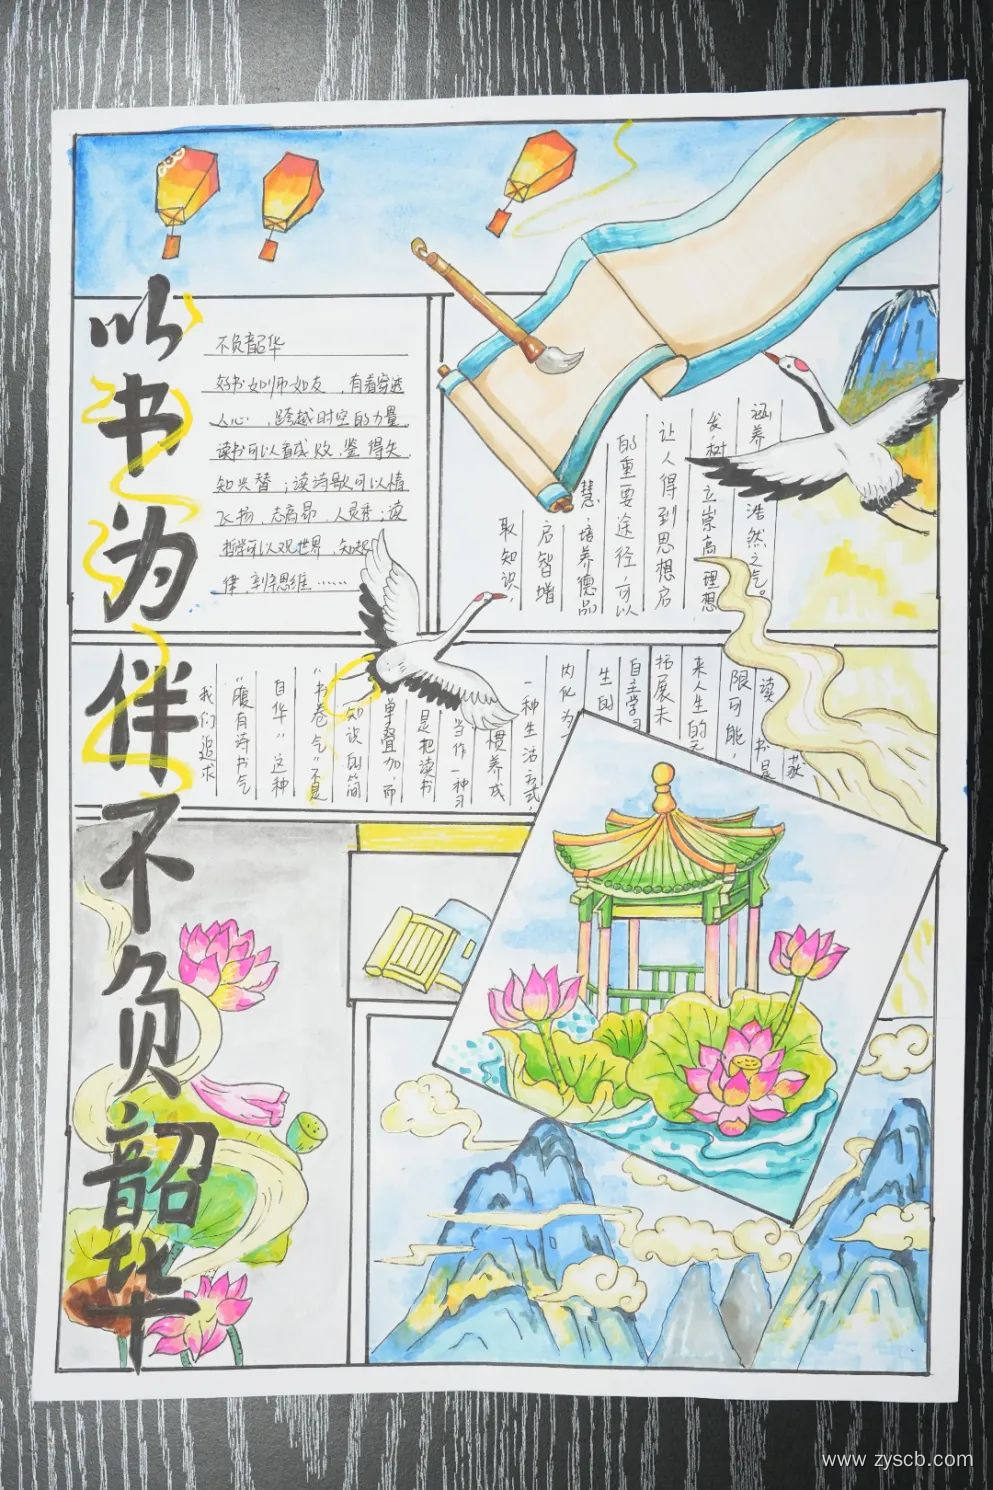 以书为伴不负韶华
不负韶华
好书如师如友，有着穿透
人心，跨越时空的力量。
读书可以看成败、鉴得失、
知兴替；读诗歌可以情
飞扬、志高昂、人灵秀；读
哲学可以观世界、知
律、辨思维……
读书是获
取知识、
启智增
慧、培养德品
的重要途径，可以
让人得到思想启
发，树立崇高理想
涵养浩然之气。
读书是
限可能，
来人生的无
拓展未
自主学习
生的
内化为
一种生活方式，
惯养成
当作一种习
是把读书
单叠加，而
知识的简
"书卷气"不是
自华"这种
"腹有诗书气
我们追求
www.zyscb.com